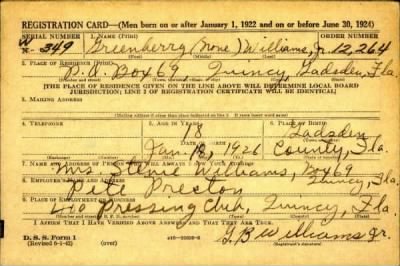 REGISTRATION CARD—(Men born on or after January 1, 1922 and on or before June 30, 1924)
SERIAL NUMBER 1. NAME (Print) ORDER NUMBER
W
N- 349 Greenberry (None) Williams, Jr. 12,264
2. PLACE OF RESIDENCE (Print)
P.O. Box 69 Quincy, Gadsden, Fla.
[THE PLACE OF RESIDENCE GIVEN ON THE LINE ABOVE WILL DETERMINE LOCAL BOARD
JURISDICTION; LINE 2 OF REGISTRATION CERTIFICATE WILL BE IDENTICAL]
3. MAILING ADDRESS
[Mailing address if other than place indicated on line 2. If same insert word same]
4. TELEPHONE 5. AGE IN YEARS 6. PLACE OF BIRTH
18 Gadsden
DATE OF BIRTH
Jan. 1926 County, Fla.
7. NAME AND ADDRESS OF PERSON WHO WILL ALWAYS KNOW YOUR ADDRESS
Mrs. Williams, Box 69
8. EMPLOYER'S NAME AND ADDRESS Quincy, Fla.
Pete Preston
9. PLACE OF EMPLOYMENT OR BUSINESS
Pressing Club, Quincy, Fla.
I AFFIRM THAT I HAVE VERIFIED ABOVE ANSWERS AND THAT THEY ARE TRUE.
D. S. S. Form 1
(Revised 6-1-42) G.B. Williams Jr.
(Registrant's signature)